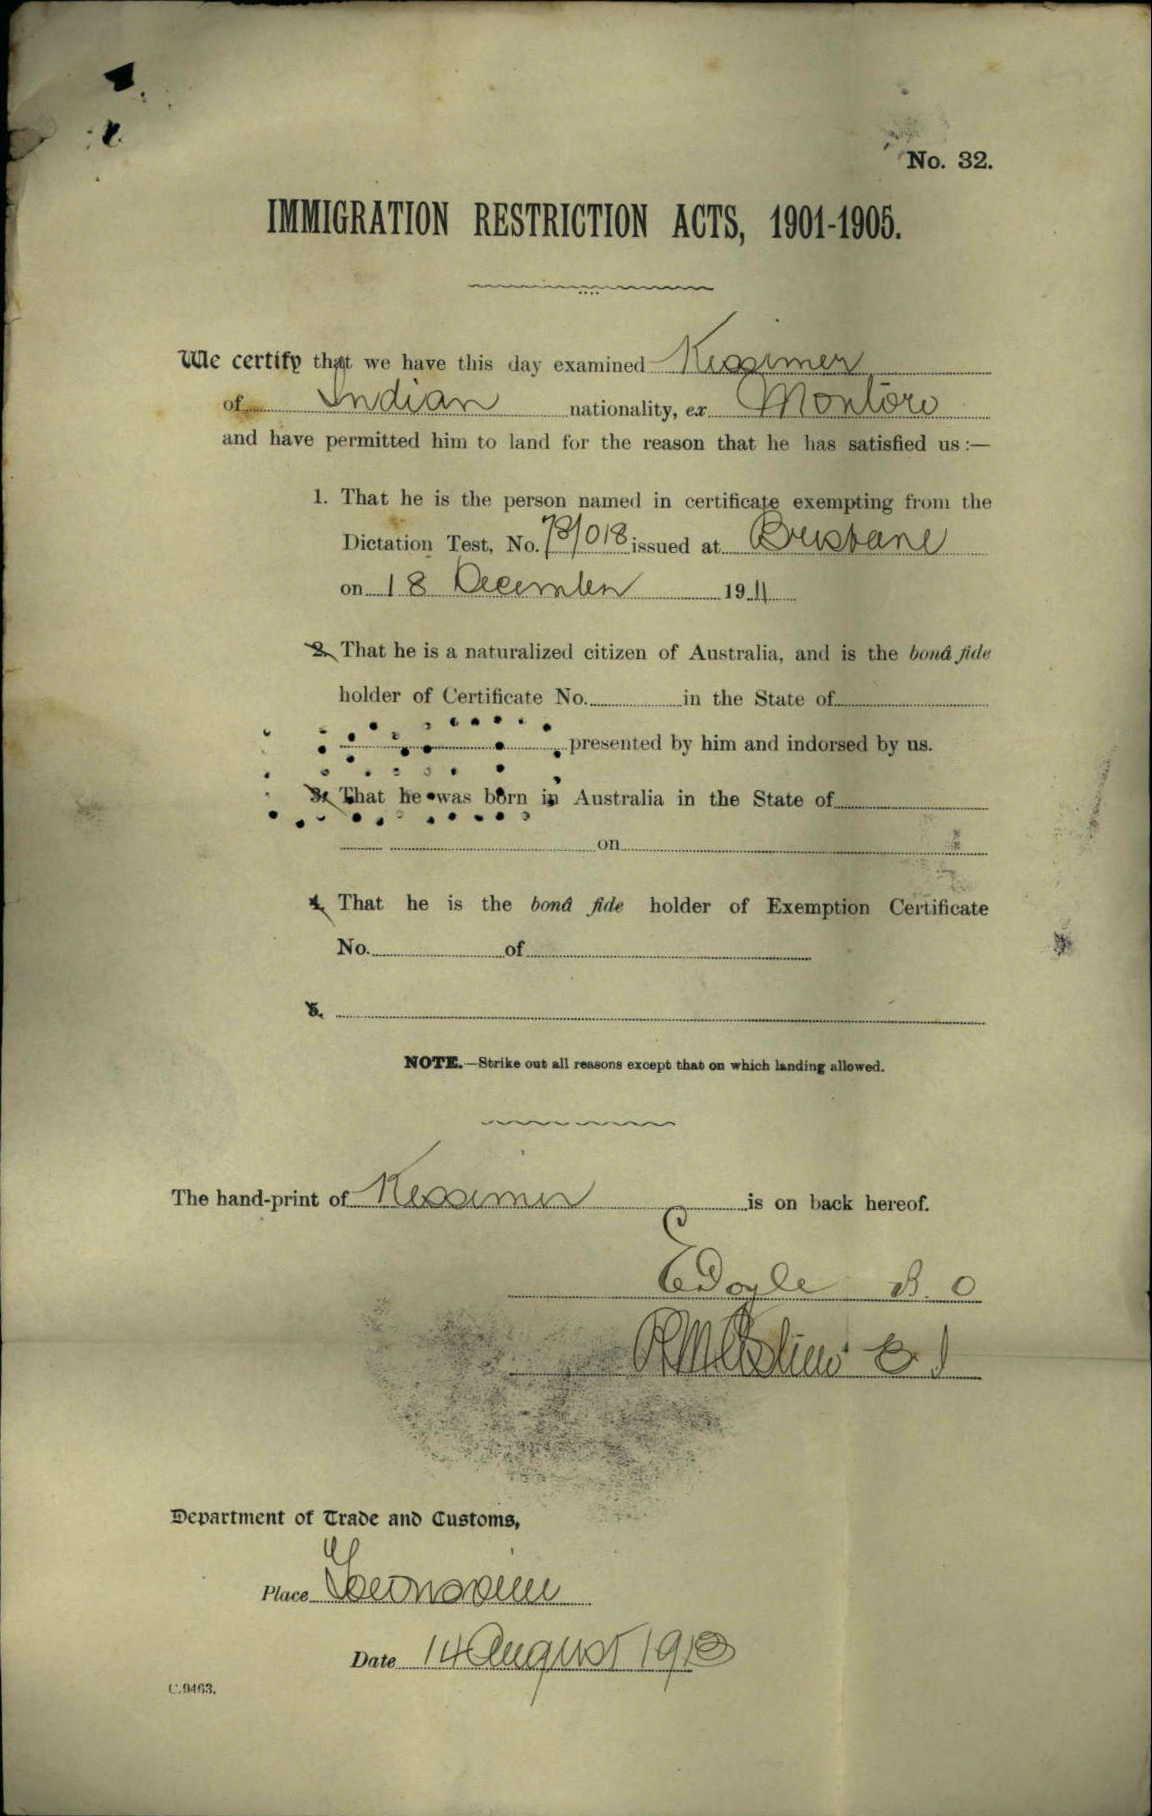 No. 32.
IMMIGRATION RESTRICTION ACTS, 1901-1905.
We certify that we have this day examined Kessimer
of Indian nationality, ex Montoro
and have permitted him to land for the reason that he has satisfied us :—
1. That he is the person named in certificate exempting from the
Dictation Test, No. issued at Brisbane
on 18 December 1911
2. That he is a naturalized citizen of Australia, and is the bonâ fide
holder of Certificate No. in the State of
presented by him and indorsed by us.
3. That he was born in Australia in the State of
on
4. That he is the bonâ fide holder of Exemption Certificate
No. of
5.
NOTE.—Strike out all reasons except that on which landing allowed.
The hand-print of Kessimer is on back hereof.
E Doyle B. O
Department of Trade and Customs,
Place Townsville
Date 14 August 1913
C.9463.